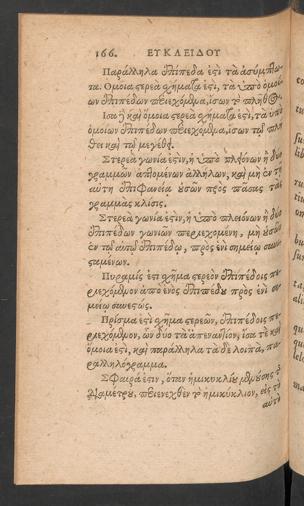 166. ΕΥΚΛΕΙΔΟΥ
Παράλληλα ἐπίπεδα ἐστὶ τὰ ἀσύμπτω-
τα. Ὅμοια στερεὰ σχήματά ἐστι, τὰ ὑπὸ ὁμοί-
ων ἐπιπέδων περιεχόμενα, ἴσων τὸ πλῆθος.
Ἴσα ἢ καὶ ὅμοια στερεὰ σχήματά ἐστι, τὰ ὑπὸ
ὁμοίων ἐπιπέδων περιεχόμενα, ἴσων τῷ πλή-
θει καὶ τῷ μεγέθει.
Στερεὰ γωνία ἐστὶν, ἡ ὑπὸ πλειόνων ἢ δύο
γραμμῶν ἁπτομένων ἀλλήλων, καὶ μὴ ἐν τῇ
αὐτῇ ἐπιφανείᾳ οὐσῶν πρὸς πάσαις ταῖς
γραμμαῖς κλίσις.
Στερεὰ γωνία ἐστὶν, ἡ ὑπὸ πλειόνων ἢ δύο
ἐπιπέδων γωνιῶν περιεχομένη, μὴ οὐσῶν
ἐν τῷ αὐτῷ ἐπιπέδῳ, πρὸς ἑνὶ σημείῳ συνι-
σταμένων.
Πυραμίς ἐστι σχῆμα στερεὸν ἐπιπέδοις πε-
ριεχόμενον ἀπὸ ἑνὸς ἐπιπέδου πρὸς ἑνὶ ση-
μείῳ συνεστώς.
Πρίσμα ἐστὶ σχῆμα στερεῶν, ἐπιπέδοις πε-
ριεχόμενον, ὧν δύο τὰ ἀπεναντίον, ἴσα τὲ καὶ
ὅμοιά ἐστι, καὶ παράλληλα τὰ δὲ λοιπὰ, πα-
ραλληλόγραμμα.
Σφαῖρά ἐστιν, ὅταν ἡμικυκλίου μενούσης τῆς
διαμέτρου, περιενεχθὲν τὸ ἡμικύκλιον, εἰς τὸ
αὐτὸ